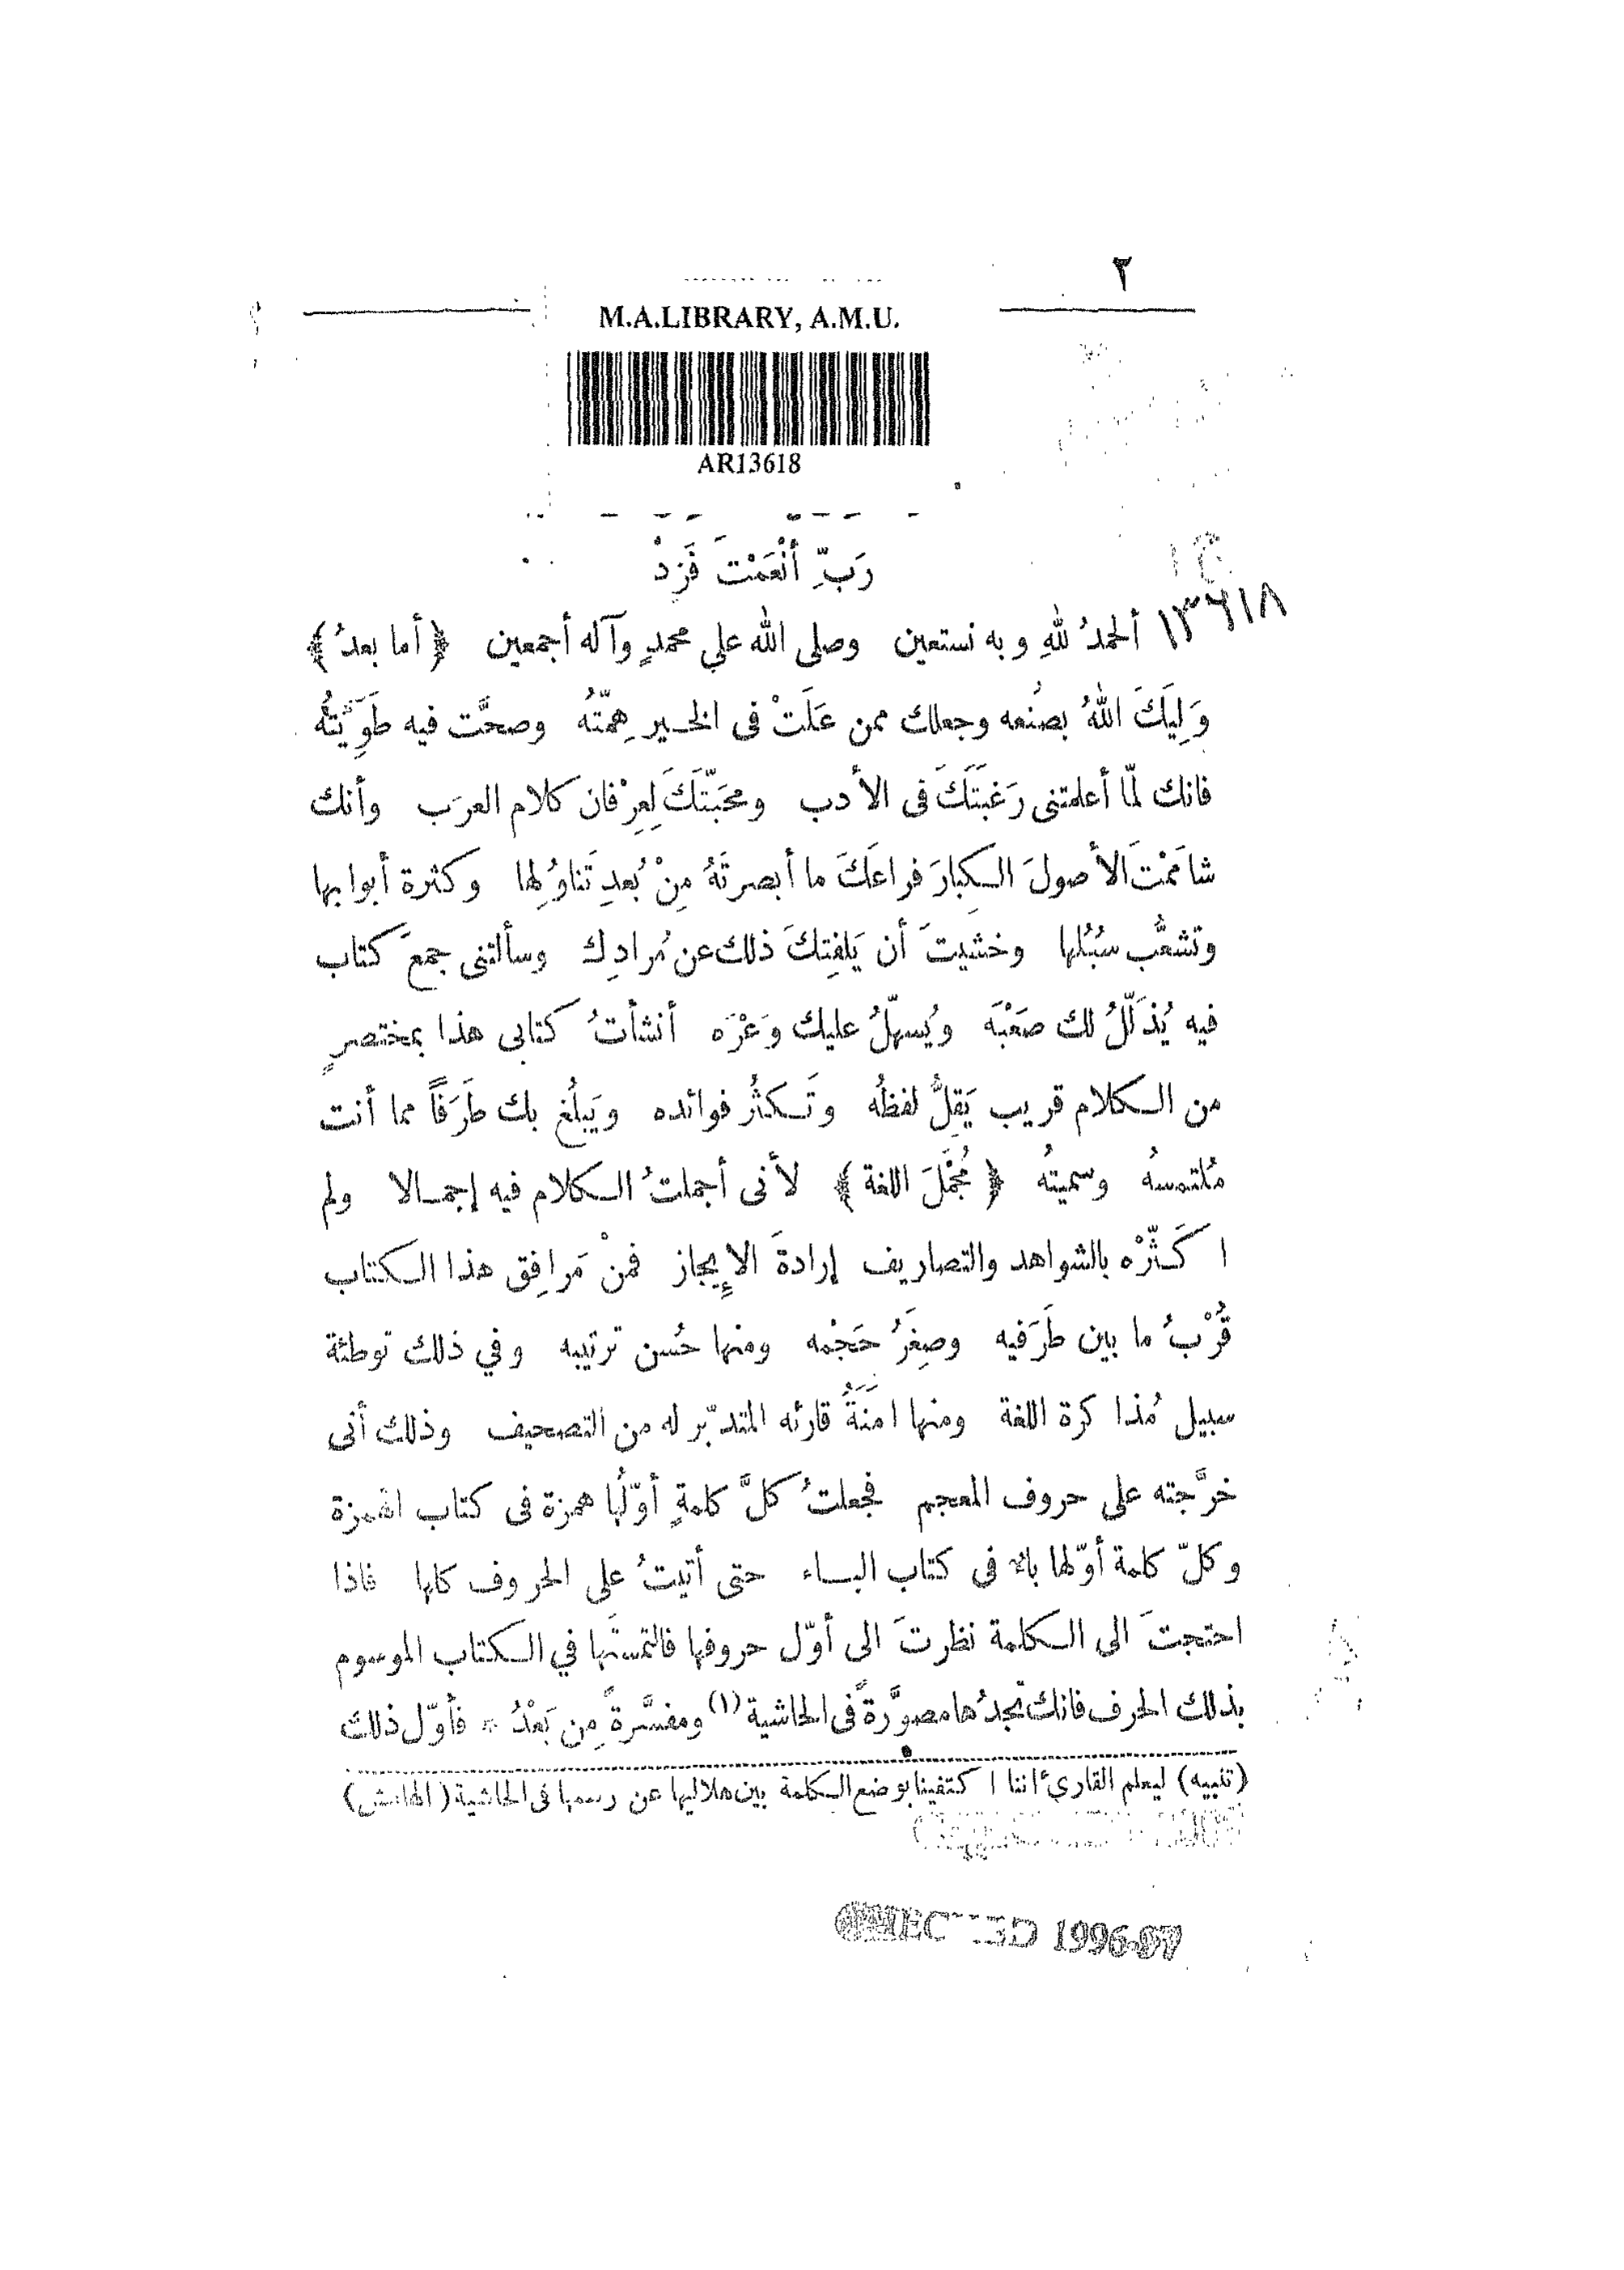 ٢
M.A.LIBRARY, A.M.U.
AR13618
رَبِّ أَنْعَمْتَ فَزِدْ
١٣٦١٨
ألحمدُ للهِ وبه نستعين وصلى الله على محمدٍ وآله أجمعين ﴿ أما بعدُ ﴾
وَلِيَكَ اللهُ بصُنعه وجعلك ممن عَلَتْ فى الخـير هِمّتهُ وصحَّت فيه طَوِيَّتهُ
فانك لمّا أعلمتنى رَغبَتَكَ فى الأدب ومحَبّتَكَ لِعِرْفان كلام العرَب وأنك
شامَمْتَ الأصولَ الكبارَ فراعَكَ ما أبصرتَهُ مِنْ بُعدِ تَناوُلِها وكثرة أبوابها
وتشعُّب سُبُلها وخشيتَ أن يَلفِتكَ ذلك عن مُرادِك وسألتنى جمعَ كتاب
فيه يُذَلِّلُ لك صَعْبَهُ ويُسهّلُ عليك وَعْرَه أنشأتُ كتابى هذا بمختصرٍ
من الكلام قريب يَقِلُّ لفظُه وتَكثُر فوائده ويَبلُغ بك طَرَفاً مما أنت
مُلتمسهُ وسميتهُ ﴿ مُجْمَلَ اللغة ﴾ لأنى أجملتُ الكلام فيه إجمـالا ولم
اكَثّرْه بالشواهد والتصاريف إرادةَ الإيجاز فمنْ مَرافِق هذا الكتاب
قُرْبُ ما بين طَرَفيه وصِغَرُ حَجْمه ومنها حُسن ترتيبه وفي ذلك توطئة
سبيل مُذاكرة اللغة ومنها امَنَةُ قارئه المتدبّر له من التصحيف وذلك أنى
خرَّجته على حروف المعجم فجعلتُ كلَّ كلمةٍ أوّلُها همزة فى كتاب الهمزة
وكلّ كلمة أوّلها باء فى كتاب البـاء حتى أتيتُ على الحروف كلها فاذا
احتجتَ الى الكلمة نظرتَ الى أوّل حروفها فالتمستَها في الكتاب الموسوم
بذلك الحرف فانك تجدُها مصوَّرةً فى الحاشية (١) ومفسَّرةً مِن بَعْدُ * فأوّل ذلك
(تنبيه) ليعلم القارئ اننا اكتفينا بوضع الكلمة بين هلاليها عن رسمها فى الحاشية (الهامش)
1996-97